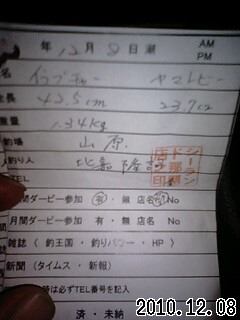 年 12月 8日 潮 AM
PM
名 イラブチャー ヤマトビー
長 42.5cm 23.7cm
重量 1.34kg
釣場 山原
釣り人 比嘉 隆
TEL
間ダービー参加 有・無 店名 No
月間ダービー参加 有・無 店名 No
雑誌 ( 釣王国・釣りパワー・HP )
新聞 (タイムス・新報)
は必ずTEL番号を記入
済・未納
2010.12.08